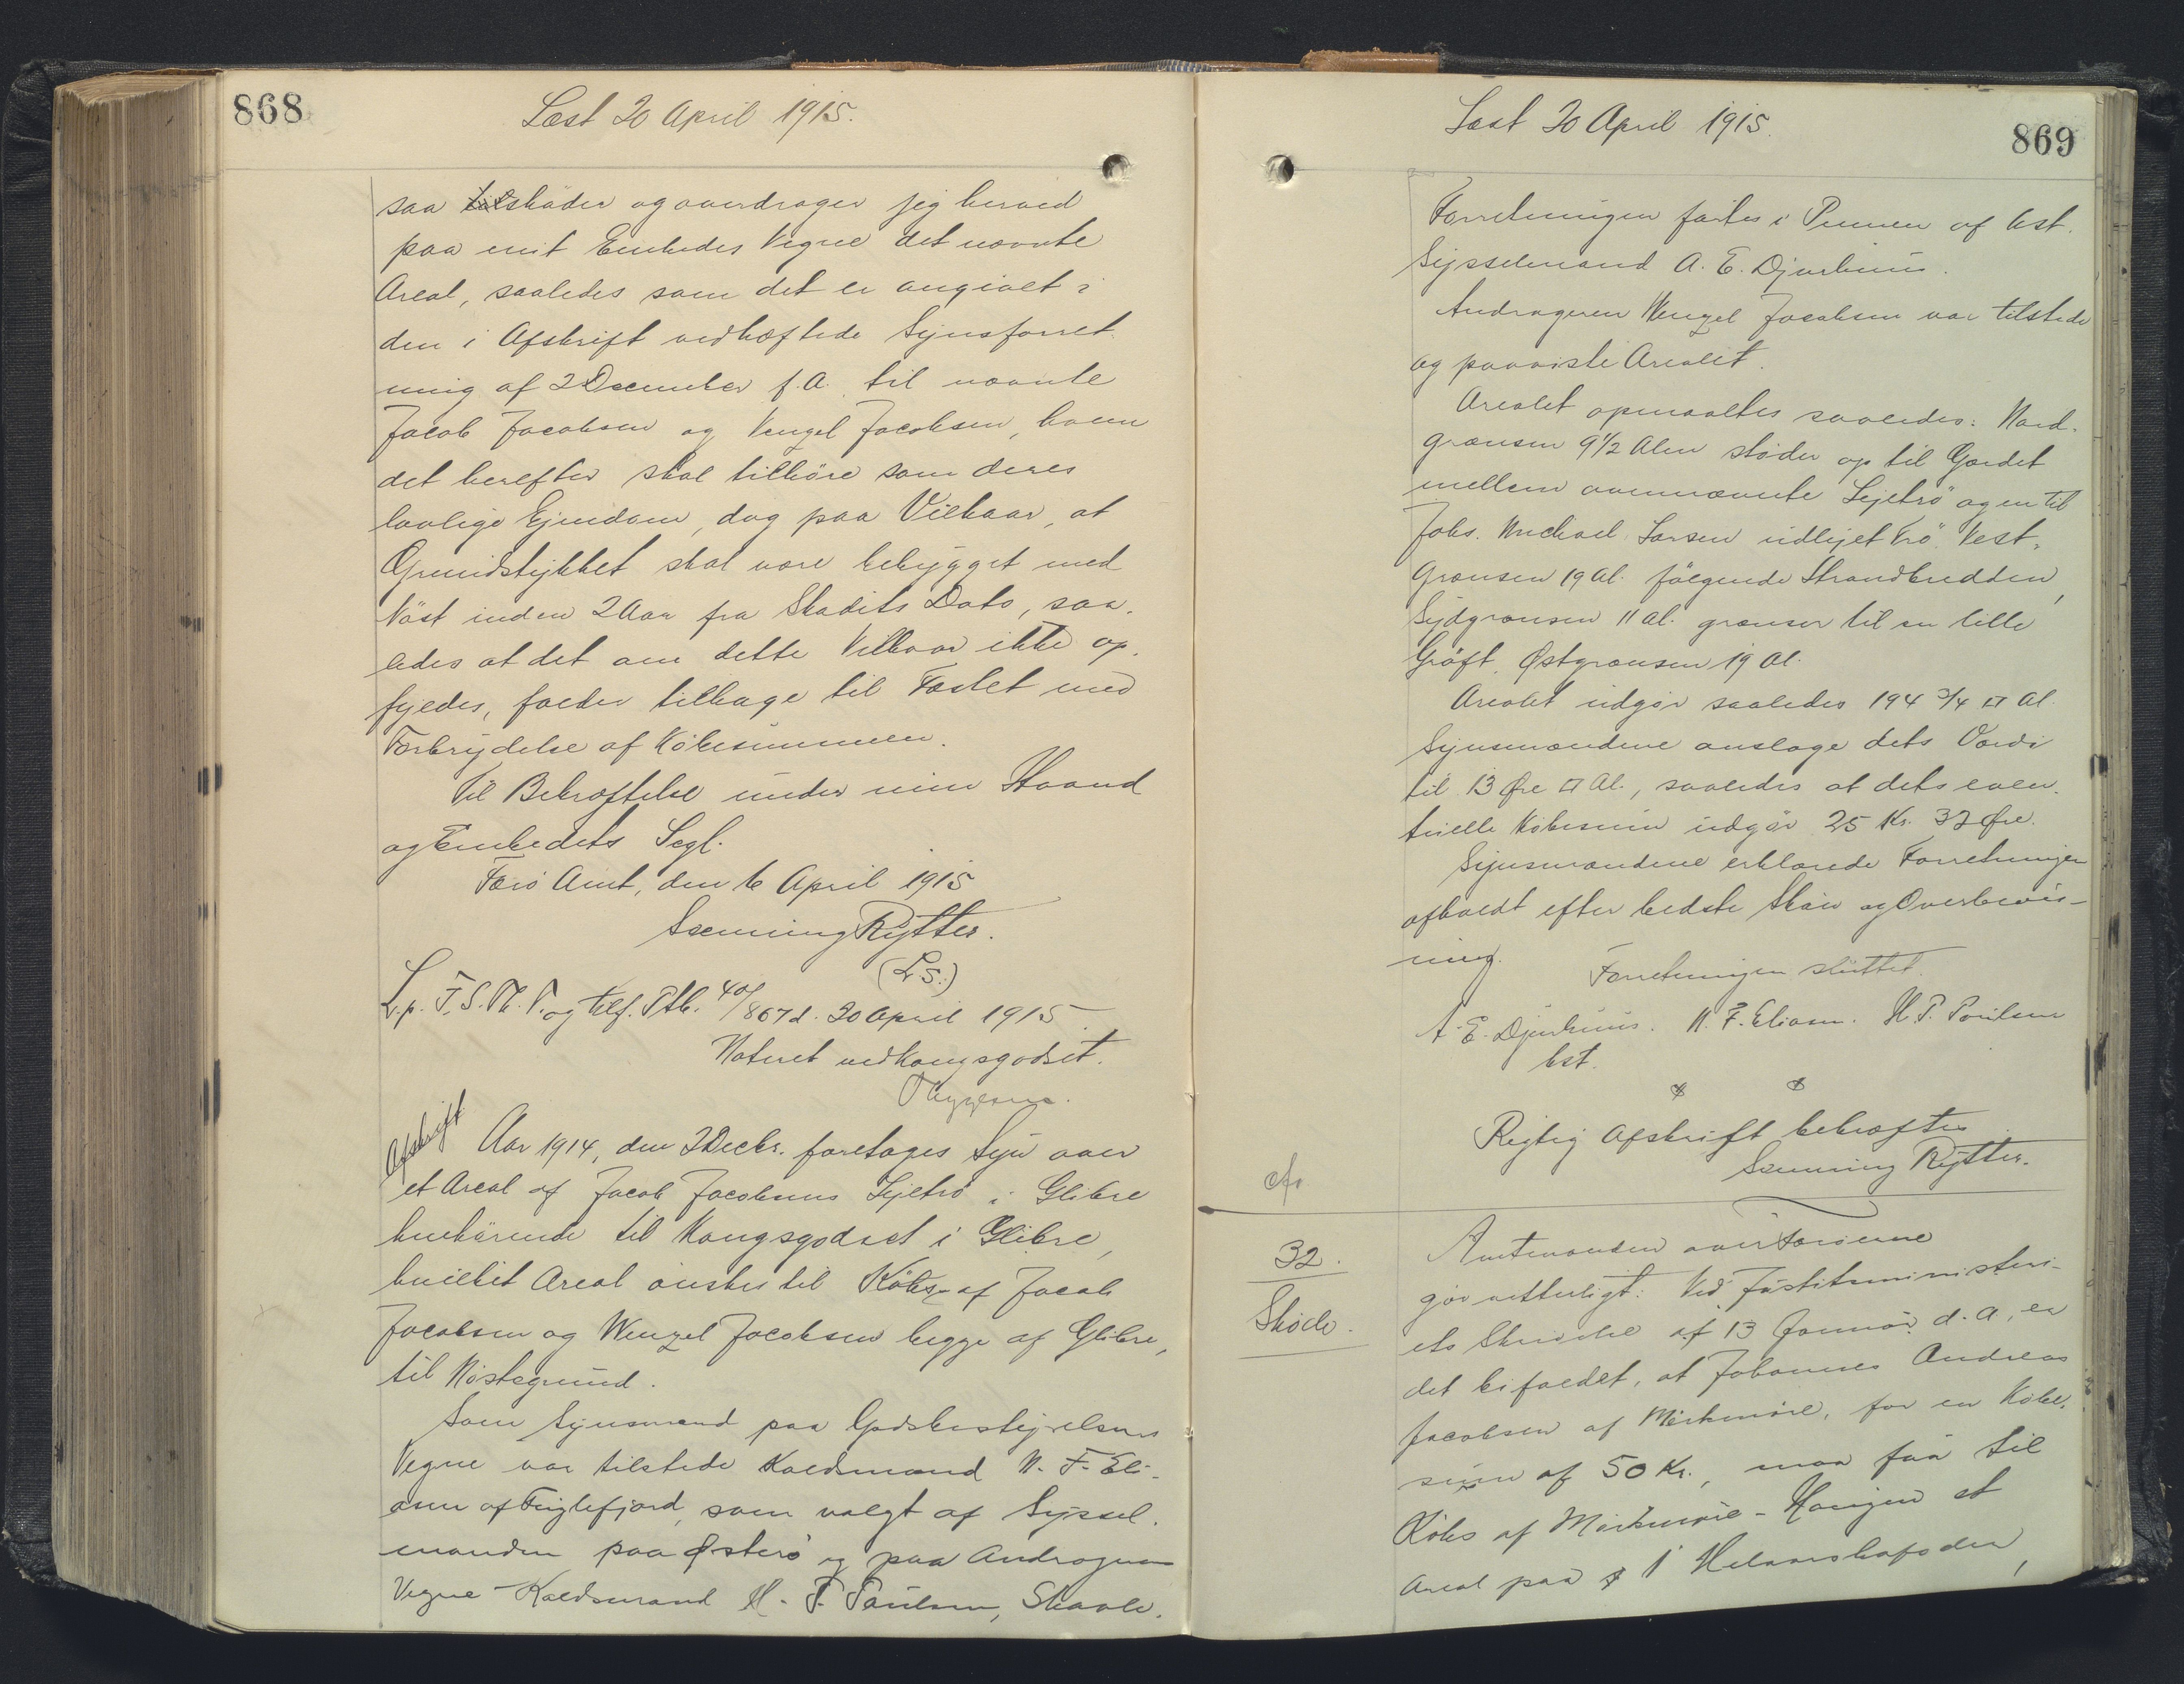 868
Læst 20 April 1915.
saa tilskøder og overdrager jeg herved
paa mit Embedes Vegne det nævnte
Areal, saaledes som det er angivet i
den i Afskrift vedhæftede Synsforret-
ning af 2 December f.A. til nævnte
Jacob Jacobsen og Venzel Jacobsen, hvem
det herefter skal tilhöre som deres
lovlige Ejendom, dog paa Vilkaar, at
Grundstykket skal være bebygget med
Nöst inden 2 Aar fra Skødets Dato, saa-
ledes at det om dette Vilkaar ikke op-
fyldes, falder tilbage til Fæstet med
Forbrydelse af Köbesummen.
Til Bekræftelse under min Haand
og Embedets Segl.
Færö Amt, den 6 April 1915
Svenning Rytter.
(L.S.)
L.p. F.S.Th.V. og tilf. Ptb. 40/867 d. 20 April 1915.
Noteret ved Kongsgodset.
Afskrift
Aar 1914, den 2 Decbr. foretoges Syn over
et Areal af Jacob Jacobsens Lejetrö i Glibre
henhörende til Kongsgodset i Glibre,
hvilket Areal önskes til Köbs af Jacob
Jacobsen og Wenzel Jacobsen begge af Glibre,
til Nöstegrund.
Som Synsmænd paa Godsbestyrelsens
Vegne var tilstede Kaldsmand N. F. Eli-
asen af Fuglefjord, som valgt af Syssel-
manden paa Østerö og paa Andragerens
Vegne Kaldsmand H. P. Poulsen, Skaale.
Læst 20 April 1915.
869
Forretningen førtes i Pennen af Ast.
Sysselmand A. E. Djurhuus.
Andrageren Wenzel Jacobsen var tilstede
og paaviste Arealet.
Arealet opmaaltes saaledes: Nord-
grænsen 9 1/2 Alen støder op til Gærdet
mellem ovennævnte Lejetrö og en til
Johs. Michael Larsen udlejet Trö. Vest-
Grænsen 19 Al. fölgende Strandbredden,
Sydgrænsen 11 Al. grænser til en lille
Gröft. Østgrænsen 19 Al.
Arealet udgör saaledes 194 3/4 □ Al.
Synsmændene anslage dets Værdi
til 13 Øre □ Al., saaledes at dets even-
tuelle Köbesum udgör 25 Kr. 32 Øre.
Synsmændene erklærede Forretningen
afholdt efter bedste Skön og Overbevis-
ning.
Forretningen sluttet.
A. E. Djurhuus. N. F. Eliasen. H. P. Poulsen
Ast.
Rigtig Afskrift bekræftes
Svenning Rytter.
32.
Skøde.
Amtmanden over Færöerne
gör vitterligt: Ved Justitsministeri-
ets Skrivelse af 13 Januar d.A. er
det bifaldet, at Johannes Andreas
Jacobsen af Mörkmöre, for en Köbe-
sum af 50 Kr., maa faa til
Köbs af Mörkmöre-Haugen et
Areal paa 1